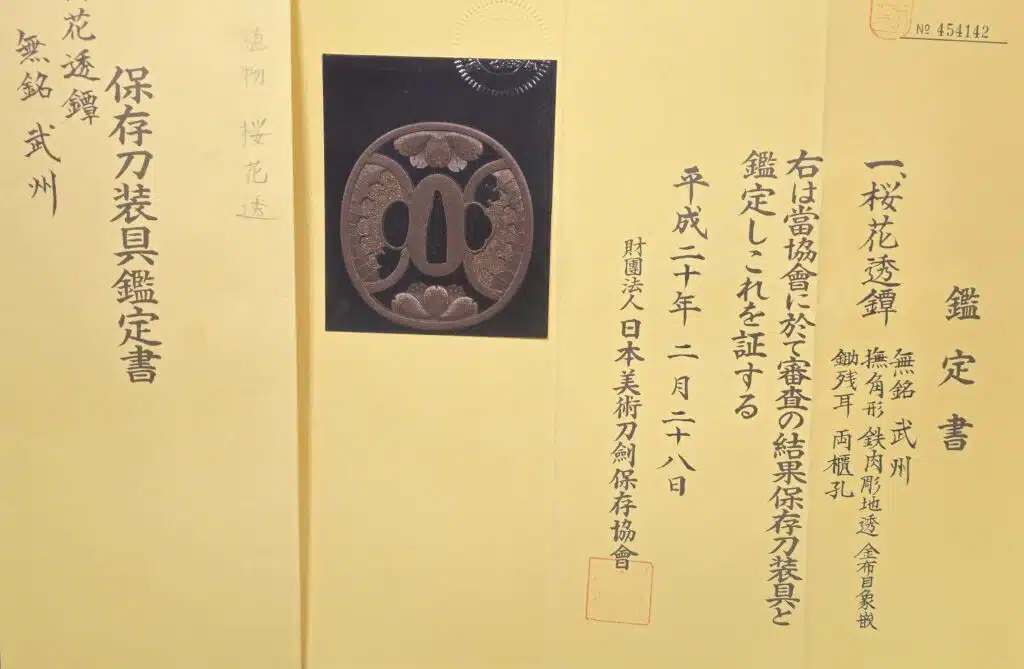 № 454142
鑑定書
一、桜花透鐔
無銘 武州
撫角形 鉄肉彫地透 金布目象嵌
鋤残耳 両櫃孔
右は當協會に於て審査の結果保存刀装具と
鑑定しこれを証する
平成二十年 二月二十八日
財團法人 日本美術刀劍保存協會
植物 桜花透
保存刀装具鑑定書
花透鐔
無銘 武州